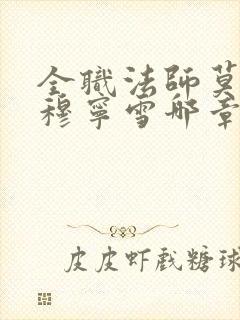 全職法師莫
穆寧雪那章
皮皮虾戲糖球